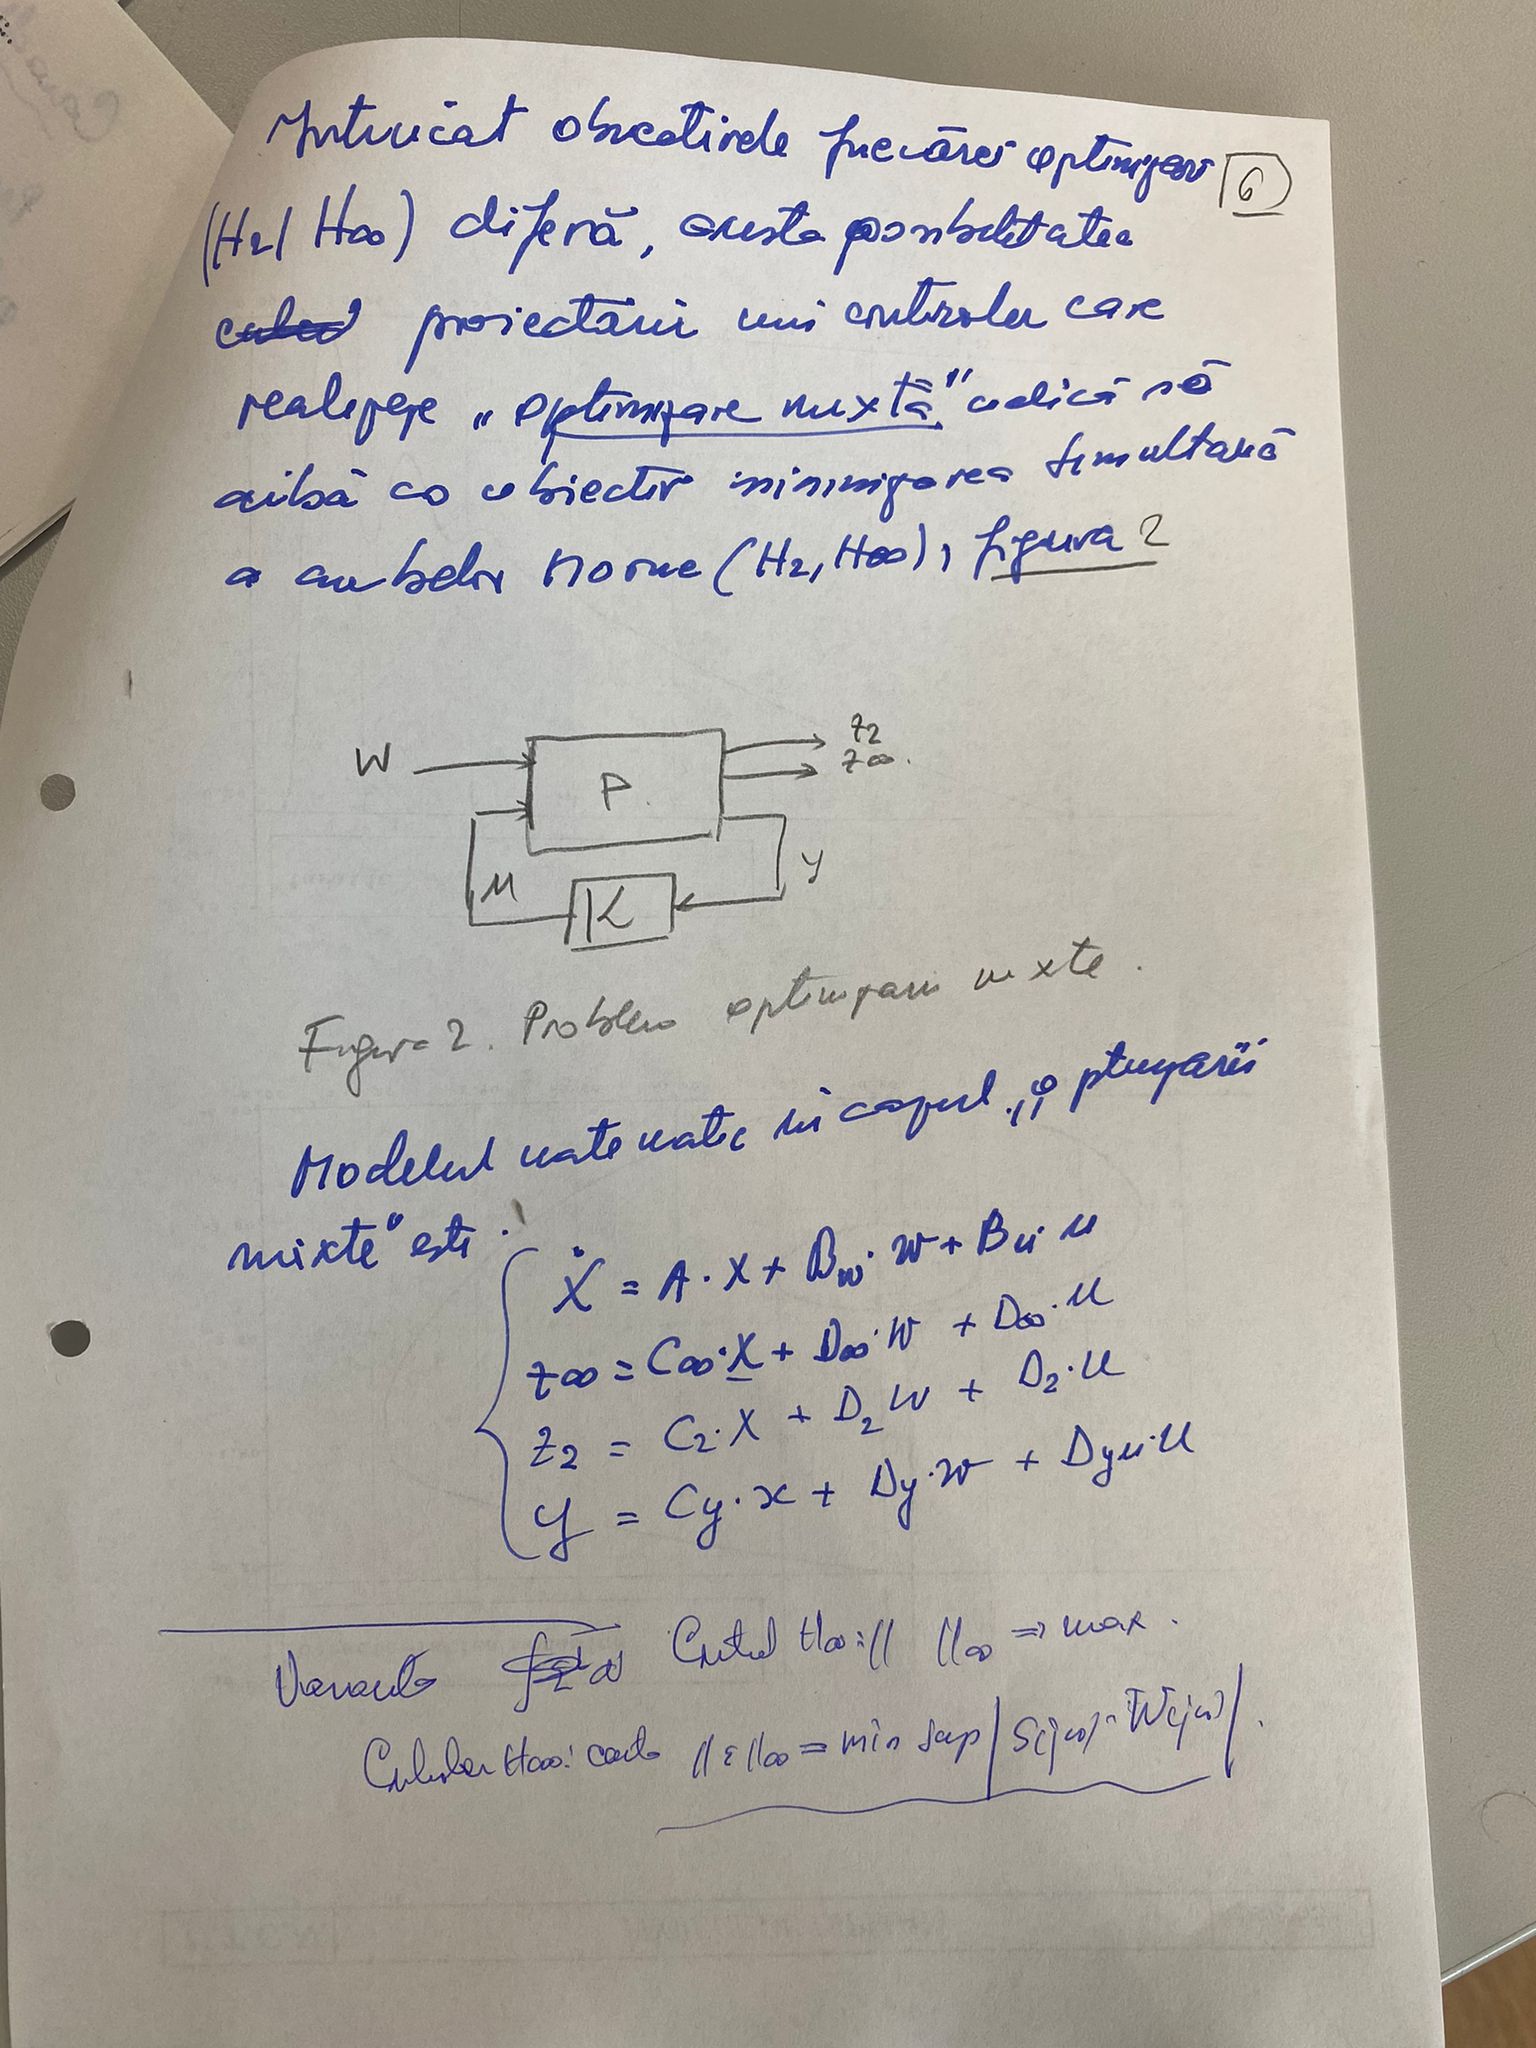 Întrucât obiectivele fiecărei optimizări 6
(H2/ H∞) diferă, exista posibilitatea
proiectării unui controler care
realizeze „optimizare mixtă" adică să
aibă ca obiectiv minimizarea simultană
a ambelor norme (H2, H∞), figura 2
W P. z2
z∞.
u K y
Figura 2. Problema optimizarii mixte.
Modelul matematic în cazul „optimizării
mixte" este:
Ẋ = A·X + Bw·w + Bu·u
z∞ = C∞·X + D∞·W + D∞·u
z2 = C2·X + D2 W + D2·u
y = Cy·x + Dy·w + Dyu·u
Varianta H∞: || ||∞ ⇒ max.
H∞: cauta || ε ||∞ = min sup | S(jω)·W(jω) |.